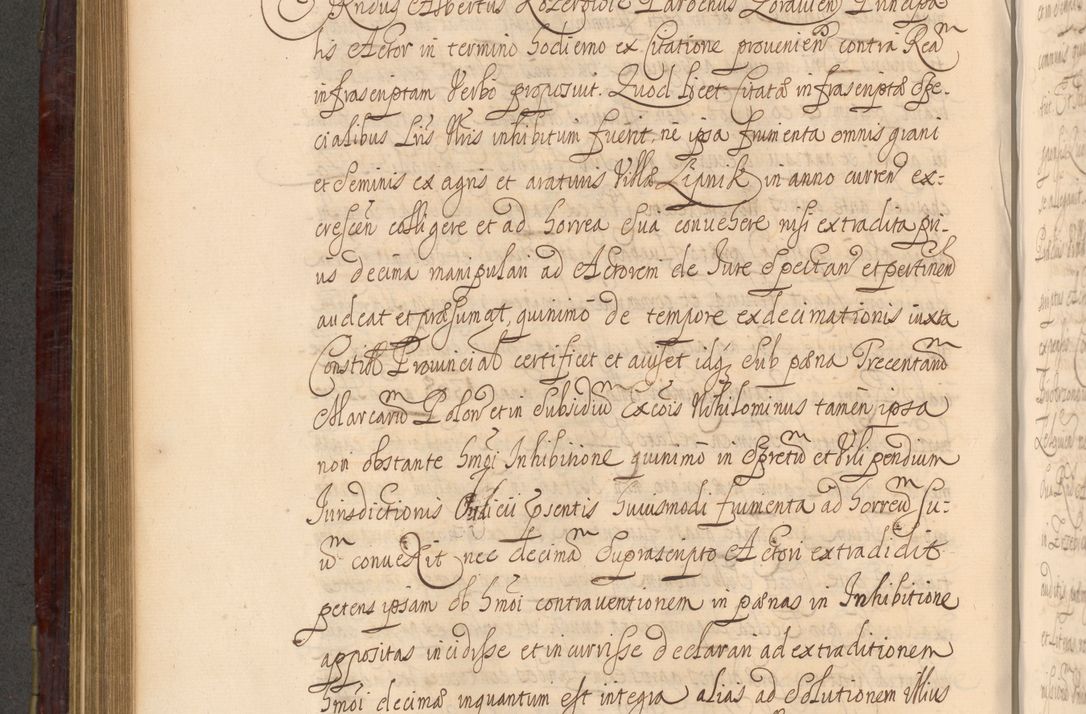 Rndus Albertus Kozerowic Parochus Loravien Principa
lis Actor in termino hodierno ex Citatione provenien contra Ream
infrascriptam Verbo proposuit. Quod licet Citatæ infrascriptæ Spe-
cialibus Lris Nris inhibitum fuerit, ne ipsa frumenta omnis grani
et Seminis ex agris et araturis Villæ Lipnik in anno curren ex-
crescen colligere et ad horrea Sua convehere nisi extradita pri-
us decima manipulari ad Actorem de Iure Spectan et pertinen
audeat et præsumat, quinimo de tempore exdecimationis iuxta
Constit Provincial certificet et aviset idq sub pæna Trecentarum
Marcarum Polon et in Subsidium Excois Nihilominus tamen ipsa
non obstante hmoi Inhibitione quinimo in Spretum et Vilipendium
Iurisdictionis Officii psentis huiusmodi frumenta ad horreum Su-
um convexit nec decimam Suprascripto Actori extradidit
petens ipsam ob hmoi contraventionem in pænas in Inhibitione
appositas incidisse et incurrisse declarari ad extraditionem
hmoi decimæ inquantum est integra alias ad Solutionem illius